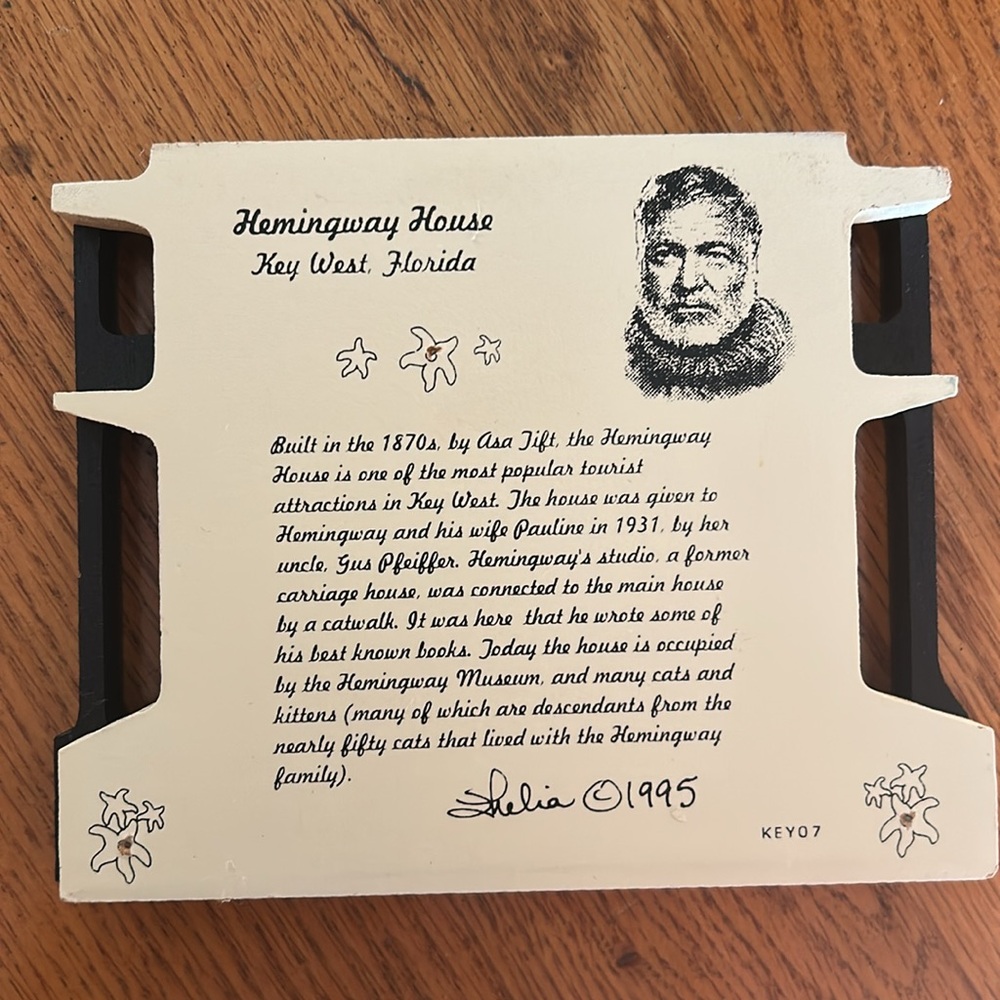 Hemingway House
Key West, Florida
Built in the 1870s, by Asa Tift, the Hemingway
House is one of the most popular tourist
attractions in Key West. The house was given to
Hemingway and his wife Pauline in 1931, by her
uncle, Gus Pfeiffer. Hemingway's studio, a former
carriage house, was connected to the main house
by a catwalk. It was here that he wrote some of
his best known books. Today the house is occupied
by the Hemingway Museum, and many cats and
kittens (many of which are descendants from the
nearly fifty cats that lived with the Hemingway
family).
Shelia ©1995
KEY07